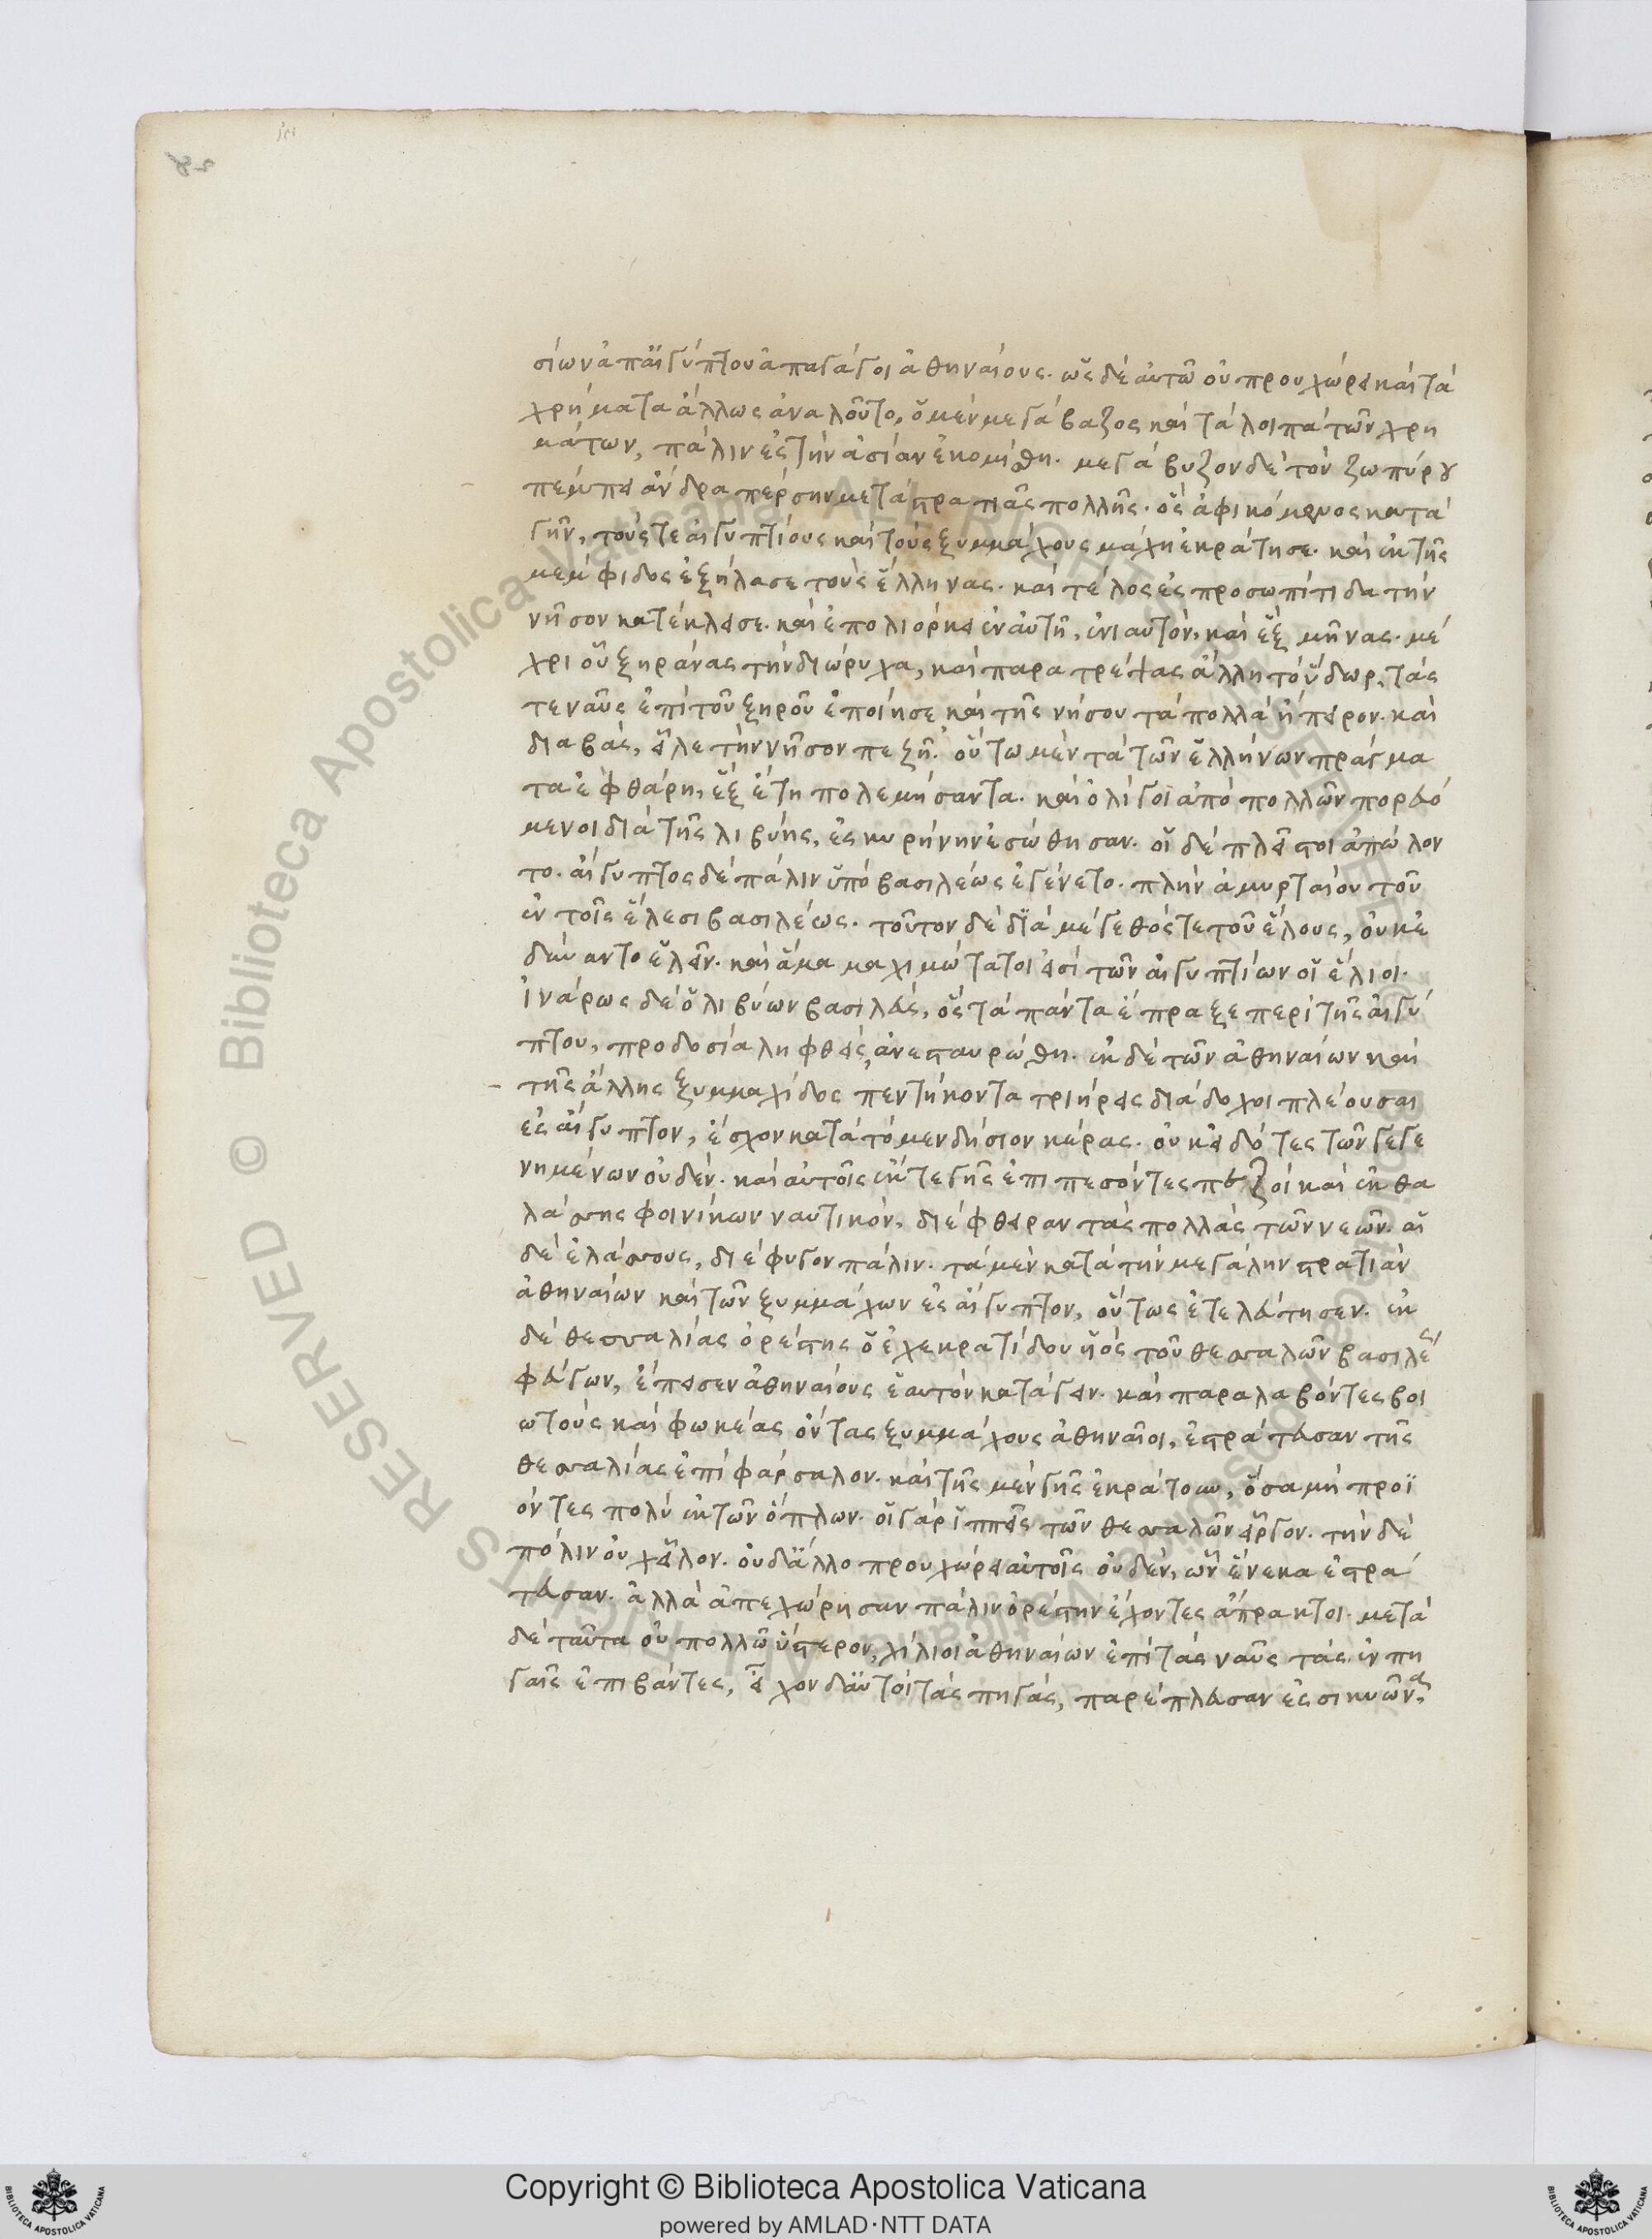 σίων ἀπ αἰγύπτου ἀπαγάγοι ἀθηναίους. ὡς δὲ αὐτῶ οὐ προυχώρει καὶ τὰ
χρήματα ἄλλως ἀναλοῦτο, ὁ μὲν μεγάβαζος καὶ τὰ λοιπὰ τῶν χρη
μάτων, πάλιν ἐς τὴν ἀσίαν ἐκομίσθη. μεγάβυζον δὲ τὸν ζωπύρου
πέμπει ἄνδρα πέρσην μετὰ στρατιᾶς πολλῆς. ὃς ἀφικόμενος κατὰ
γῆν, τούς τε αἰγυπτίους καὶ τοὺς ξυμμάχους μάχη ἐκράτησε. καὶ ἐκ τῆς
μέμφιδος ἐξήλασε τοὺς ἕλληνας. καὶ τέλος ἐς προσωπίτιδα τὴν
νῆσον κατέκλεισε. καὶ ἐπολιόρκει ἐν αὐτῆ, ἐνιαυτὸν, καὶ ἓξ μῆνας. μέ
χρι οὗ ξηράνας τὴν διώρυχα, καὶ παρατρέψας ἄλλη τὸ ὕδωρ, τάς
τε ναῦς ἐπὶ τοῦ ξηροῦ ἐποίησε καὶ τῆς νήσου τὰ πολλὰ ἤπειρον. καὶ
διαβὰς, εἷλε τὴν νῆσον πεζῆ. οὕτω μὲν τὰ τῶν ἑλλήνων πράγμα
τα ἐφθάρη, ἓξ ἔτη πολεμήσαντα. καὶ ὀλίγοι ἀπὸ πολλῶν πορευό
μενοι διὰ τῆς λιβύης, ἐς κυρήνην ἐσώθησαν. οἱ δὲ πλεῖστοι ἀπώλον
το. αἴγυπτος δὲ πάλιν ὑπὸ βασιλέως ἐγένετο. πλὴν ἀμυρταίου τοῦ
ἐν τοῖς ἕλεσι βασιλέως. τοῦτον δὲ διὰ μέγεθός τε τοῦ ἕλους, οὐκ ἐ
δύναντο ἑλεῖν. καὶ ἅμα μαχιμώτατοι εἰσὶ τῶν αἰγυπτίων οἱ ἕλιοι.
ἰνάρως δὲ ὁ λιβύων βασιλεὺς, ὃς τὰ πάντα ἔπραξε περὶ τῆς αἰγύ
πτου, προδοσία ληφθεὶς, ἀνεσταυρώθη. ἐκ δὲ τῶν ἀθηναίων καὶ
τῆς ἄλλης ξυμμαχίδος πεντήκοντα τριήρεις διάδοχοι πλέουσαι
ἐς αἴγυπτον, ἔσχον κατὰ τὸ μενδήσιον κέρας. οὐκ εἰδότες τῶν γεγε
νημένων οὐδέν. καὶ αὐτοῖς ἔκ τε γῆς ἐπιπεσόντες πεζοὶ καὶ ἐκ θα
λάσσης φοινίκων ναυτικὸν, διέφθειραν τὰς πολλὰς τῶν νεῶν. αἱ
δὲ ἐλάσσους, διέφυγον πάλιν. τὰ μὲν κατὰ τὴν μεγάλην στρατιὰν
ἀθηναίων καὶ τῶν ξυμμάχων ἐς αἴγυπτον, οὕτως ἐτελεύτησεν. ἐκ
δὲ θεσσαλίας ὀρέστης ὁ ἐχεκρατίδου υἱὸς τοῦ θεσσαλῶν βασιλέως
φεύγων, ἔπεισεν ἀθηναίους ἑαυτὸν κατάγειν. καὶ παραλαβόντες βοι
ωτοὺς καὶ φωκέας ὄντας ξυμμάχους ἀθηναῖοι, ἐστράτευσαν τῆς
θεσσαλίας ἐπὶ φάρσαλον. καὶ τῆς μὲν γῆς ἐκράτουν, ὅσα μὴ προϊ
όντες πολὺ ἐκ τῶν ὅπλων. οἱ γὰρ ἱππεῖς τῶν θεσσαλῶν εἶργον. τὴν δὲ
πόλιν οὐχ εἷλον. οὐδ ἄλλο προυχώρει αὐτοῖς οὐδὲν, ὧν ἕνεκα ἐστρά
τευσαν. ἀλλὰ ἀπεχώρησαν πάλιν ὀρέστην ἔχοντες ἄπρακτοι. μετὰ
δὲ ταῦτα οὐ πολλῶ ὕστερον, χίλιοι ἀθηναίων ἐπὶ τὰς ναῦς τὰς ἐν πη
γαῖς ἐπιβάντες, εἶχον δ αὐτοὶ τὰς πηγὰς, παρέπλευσαν ἐς σικυῶνα
Copyright © Biblioteca Apostolica Vaticana
powered by AMLAD·NTT DATA